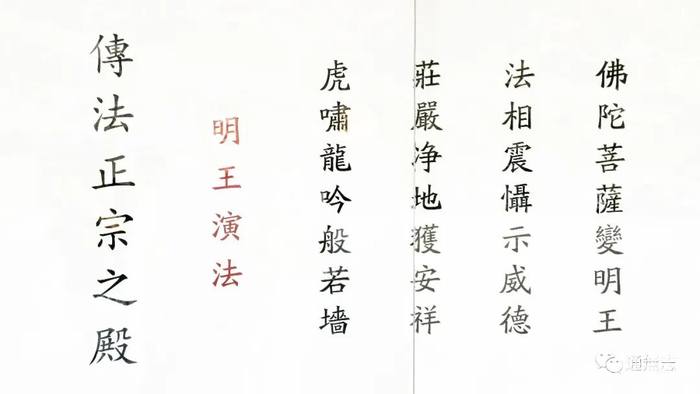 佛陀菩薩變明王
法相震懾示威德
莊嚴净地獲安祥
虎嘯龍吟般若墻
明王演法
傳法正宗之殿